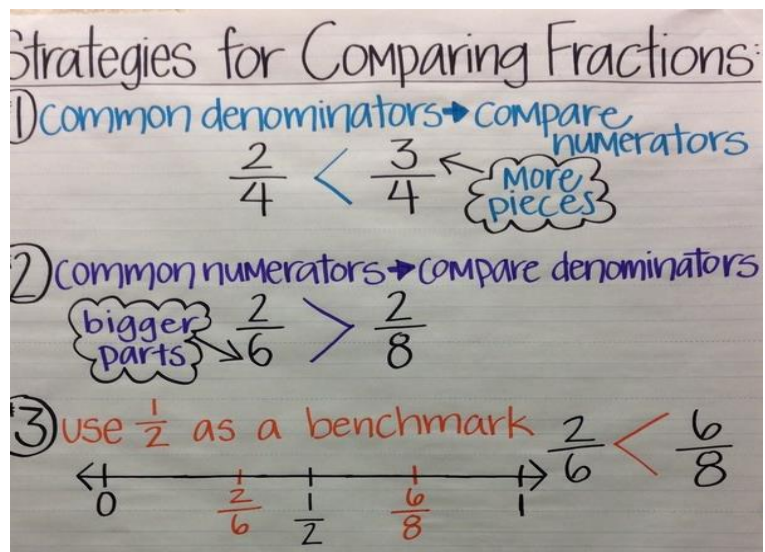 Strategies for Comparing Fractions:
1) Common denominators → compare
numerators
2/4 < 3/4 ← More
pieces
2) Common numerators → compare denominators
bigger
parts → 2/6 > 2/8
3) use 1/2 as a benchmark 2/6 < 6/8
0 2/6 1/2 6/8 1